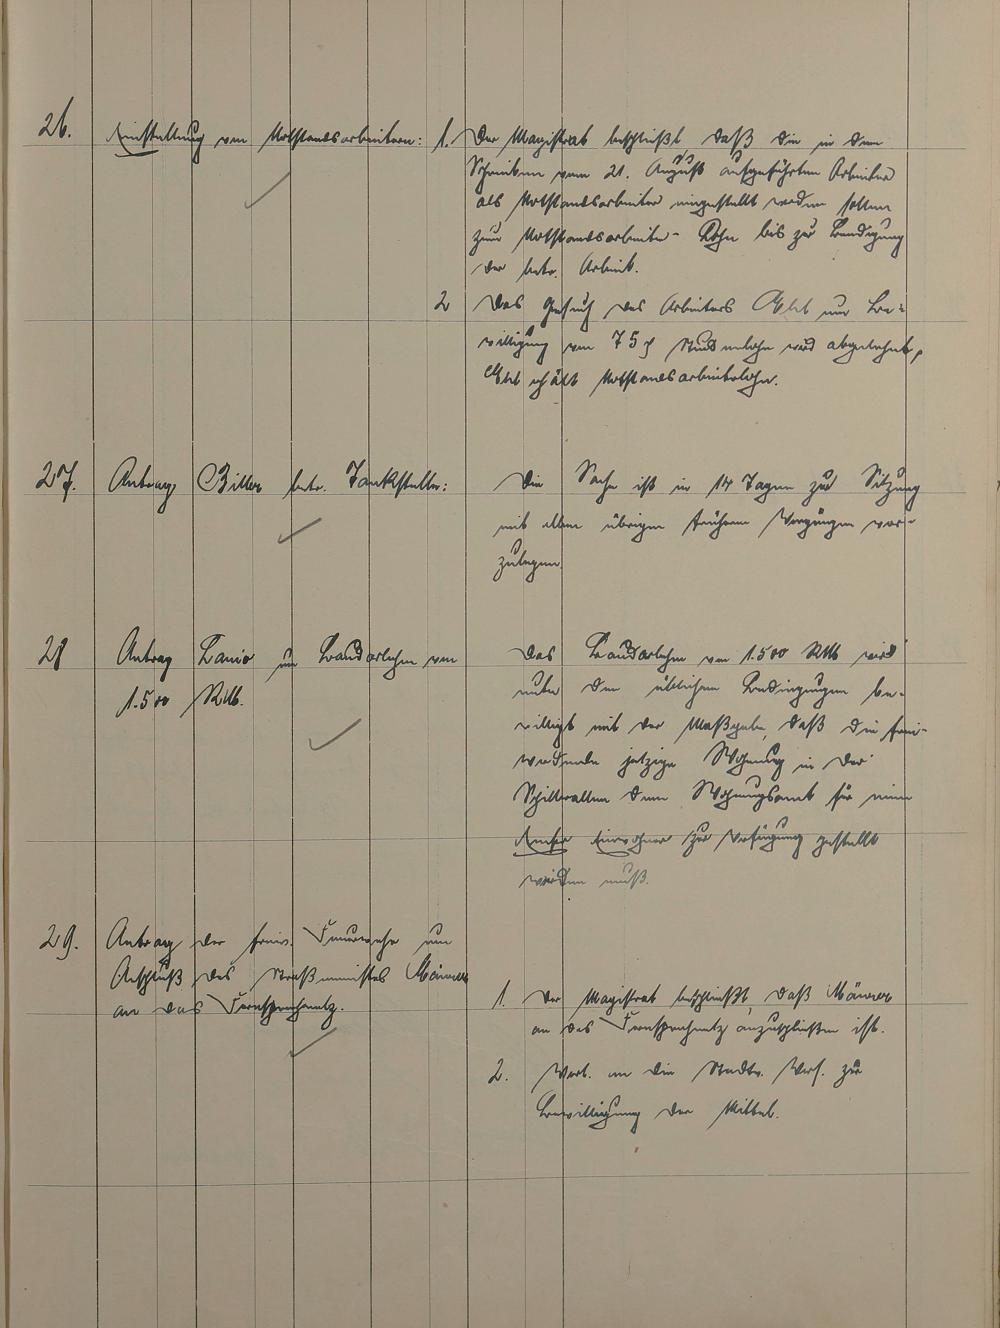 26. Einstellung von Notstandsarbeitern:
1. Der Magistrat beschließt daß die in dem
Schreiben vom 21. August aufgeführten Arbeiter
als Notstandsarbeiter eingestellt werden sollen
zum Notstandsarbeiter- Lohn bis zur Beendigung
der betr. Arbeit.
2 Das Gesuch des Arbeiters um Be=
willigung von 75 ₰ Stundenlohn wird abgelehnt,
erhält Notstandsarbeiterlohn.
27. Antrag Biller betr. Tankstelle:
Die Sache ist in 14 Tagen zur Sitzung
mit allen übrigen früheren Vorgängen vor-
zulegen
28 Antrag Lanio um Baudarlehn von
1.500 RM.
Das Baudarlehn von 1.500 RM wird
unter den üblichen Bedingungen be-
willigt mit der Maßgabe, daß die frei-
werdende jetzige Wohnung in der
Schillerallee dem Wohnungsamt für einen
Einwohner zur Verfügung gestellt
werden muß.
29. Antrag der freiw. Feuerwehr um
Anschluß des
an das Fernsprechnetz.
1. Der Magistrat beschließt, daß Männer
an das Fernsprechnetz anzuschließen ist.
2. Vorl. an die Stadtv. Vers. zur
Bewilligung der Mittel.